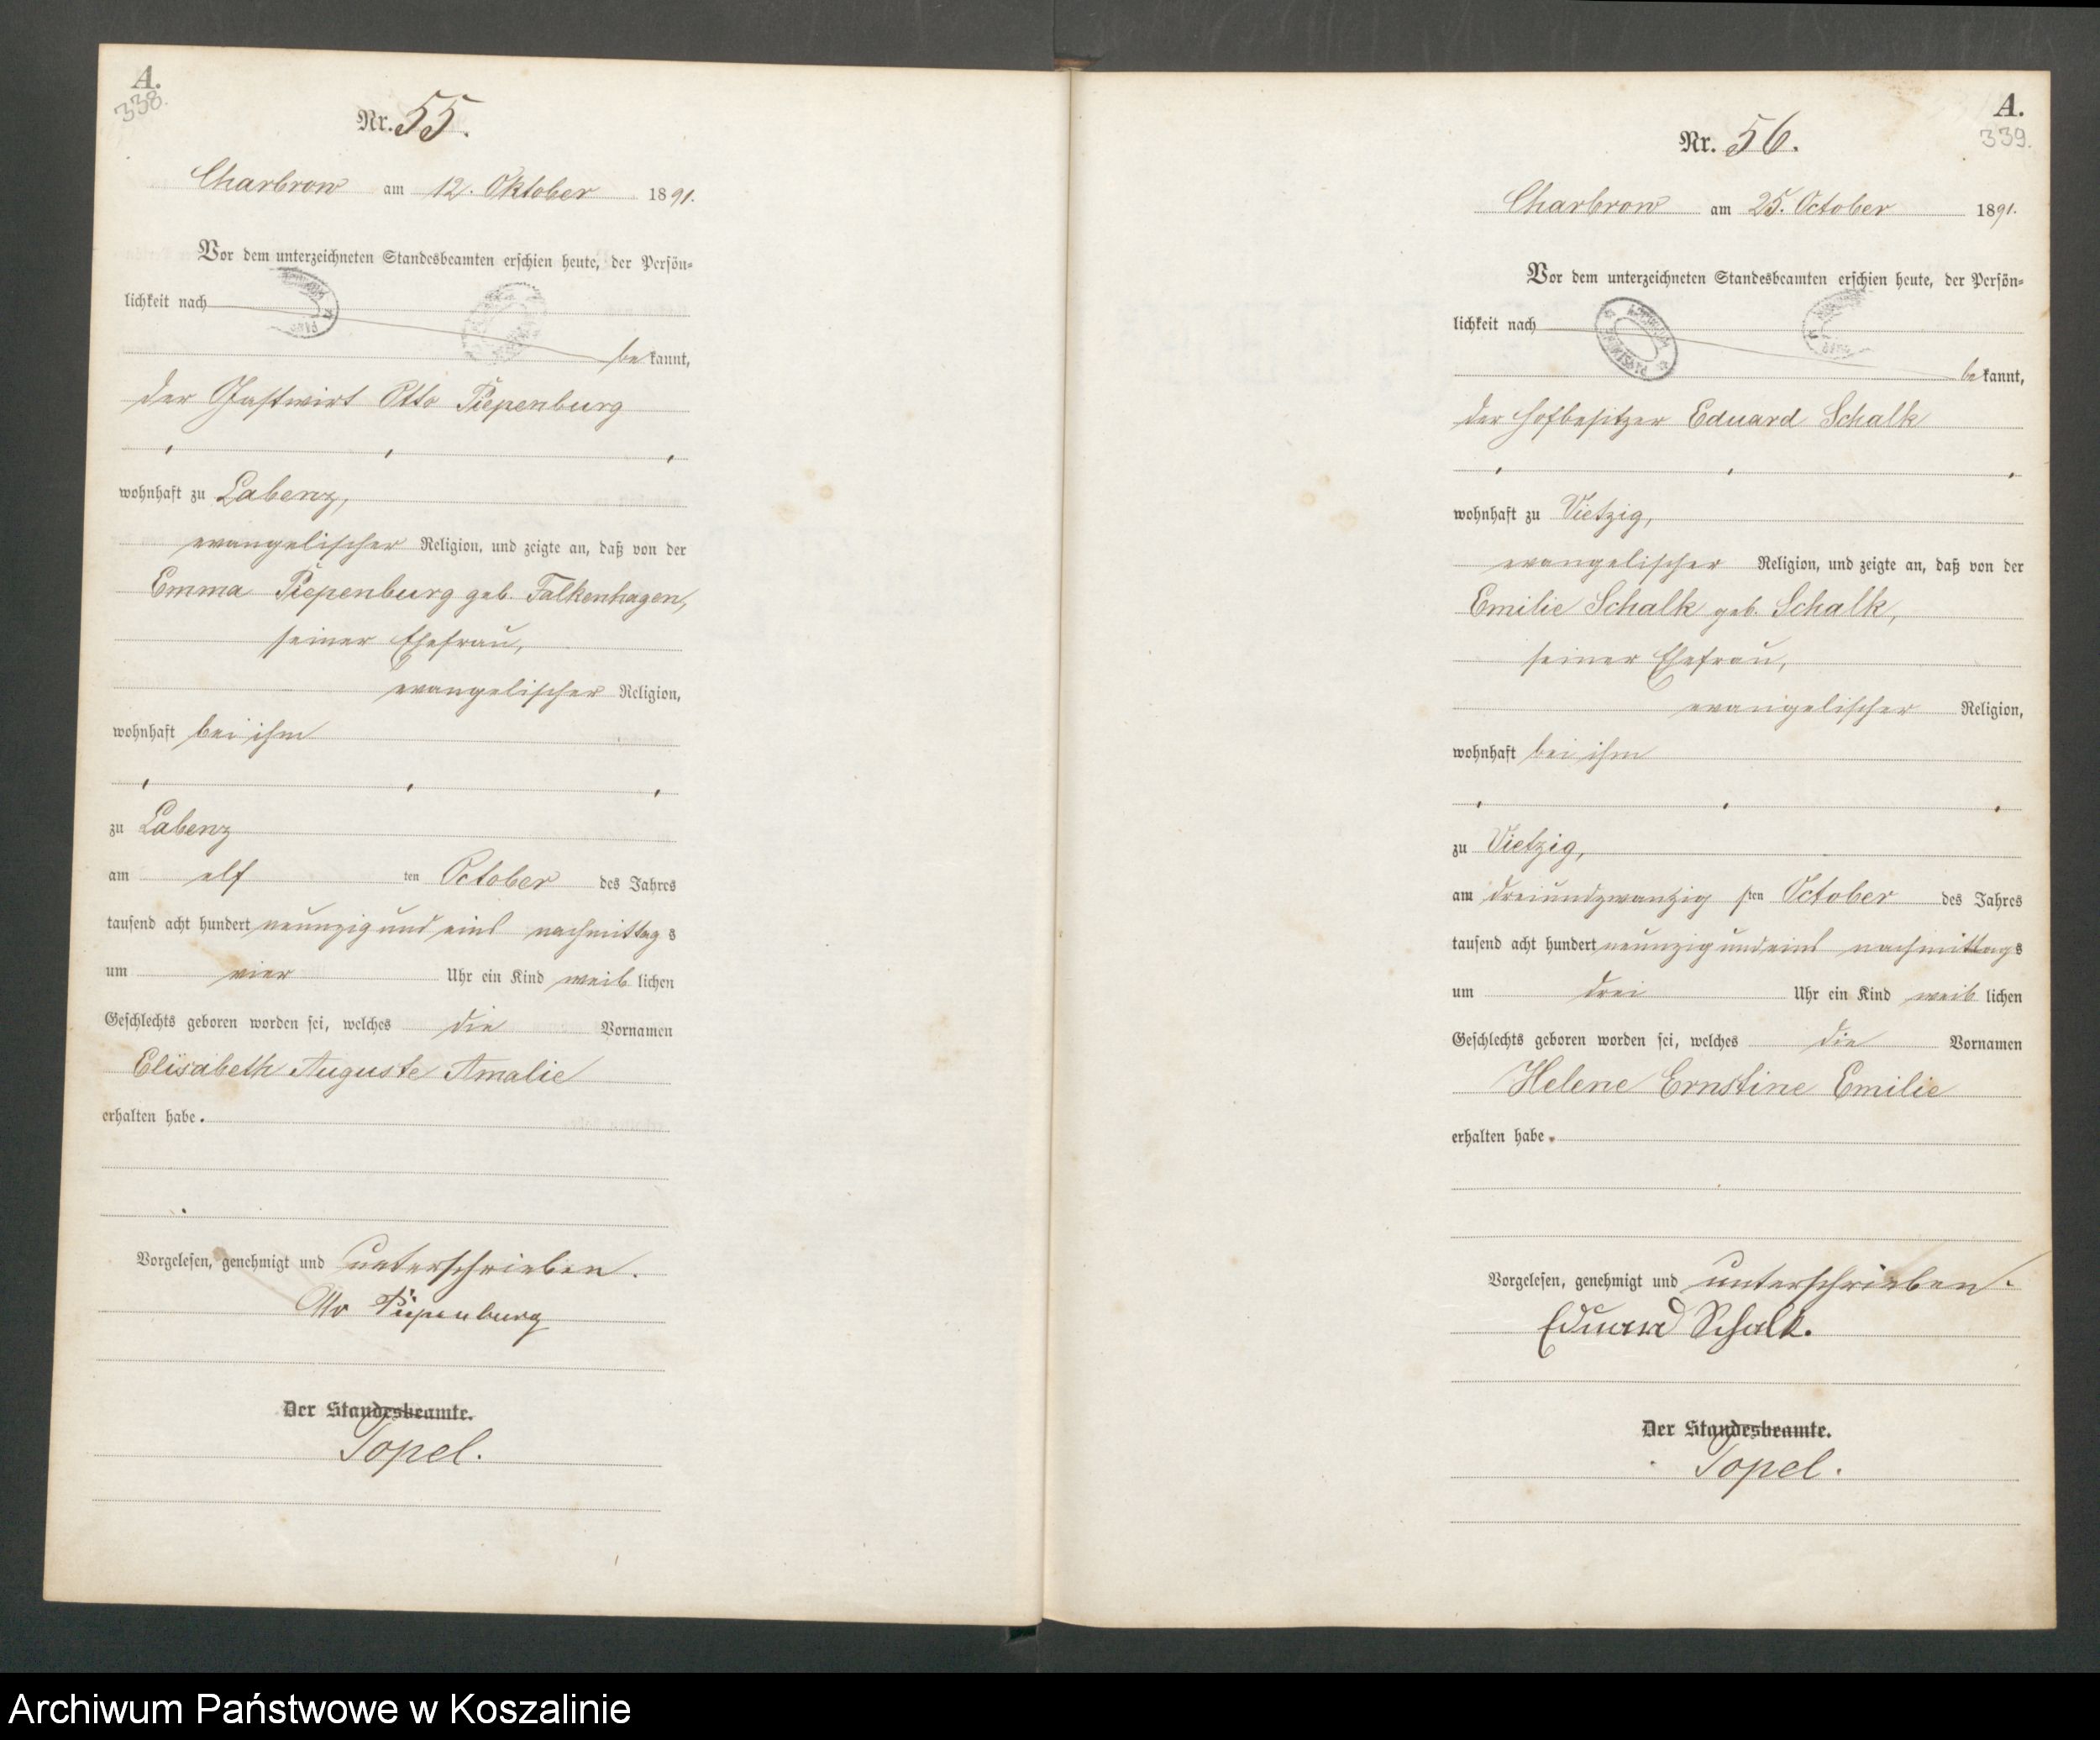 A.
338.
Nr. 55.
Charbrow am 12. Oktober 1891.
Vor dem unterzeichneten Standesbeamten erschien heute, der Persön-
lichkeit nach
bekannt,
der Gastwirt Otto Piepenburg
wohnhaft zu Labenz,
evangelischer Religion, und zeigte an, daß von der
Emma Piepenburg geb. Falkenhagen,
seiner Ehefrau,
evangelischer Religion,
wohnhaft bei ihm
zu Labenz
am elf ten October des Jahres
tausend acht hundert neunzig und eins nachmittags
um vier Uhr ein Kind weiblichen
Geschlechts geboren worden sei, welches die Vornamen
Elisabeth Auguste Amalie
erhalten habe.
Vorgelesen, genehmigt und unterschrieben.
Otto Piepenburg
Der Standesbeamte.
Topel.
A.
339.
Nr. 56.
Charbrow am 25. October 1891.
Vor dem unterzeichneten Standesbeamten erschien heute, der Persön-
lichkeit nach
bekannt,
der Hofbesitzer Eduard Schalk
wohnhaft zu Vietzig,
evangelischer Religion, und zeigte an, daß von der
Emilie Schalk geb. Schalk,
seiner Ehefrau,
evangelischer Religion,
wohnhaft bei ihm
zu Vietzig,
am dreiundzwanzigsten October des Jahres
tausend acht hundert neunzig und eins nachmittags
um drei Uhr ein Kind weiblichen
Geschlechts geboren worden sei, welches die Vornamen
Helene Ernstine Emilie
erhalten habe.
Vorgelesen, genehmigt und unterschrieben.
Eduard Schalk.
Der Standesbeamte.
Topel.
Archiwum Państwowe w Koszalinie